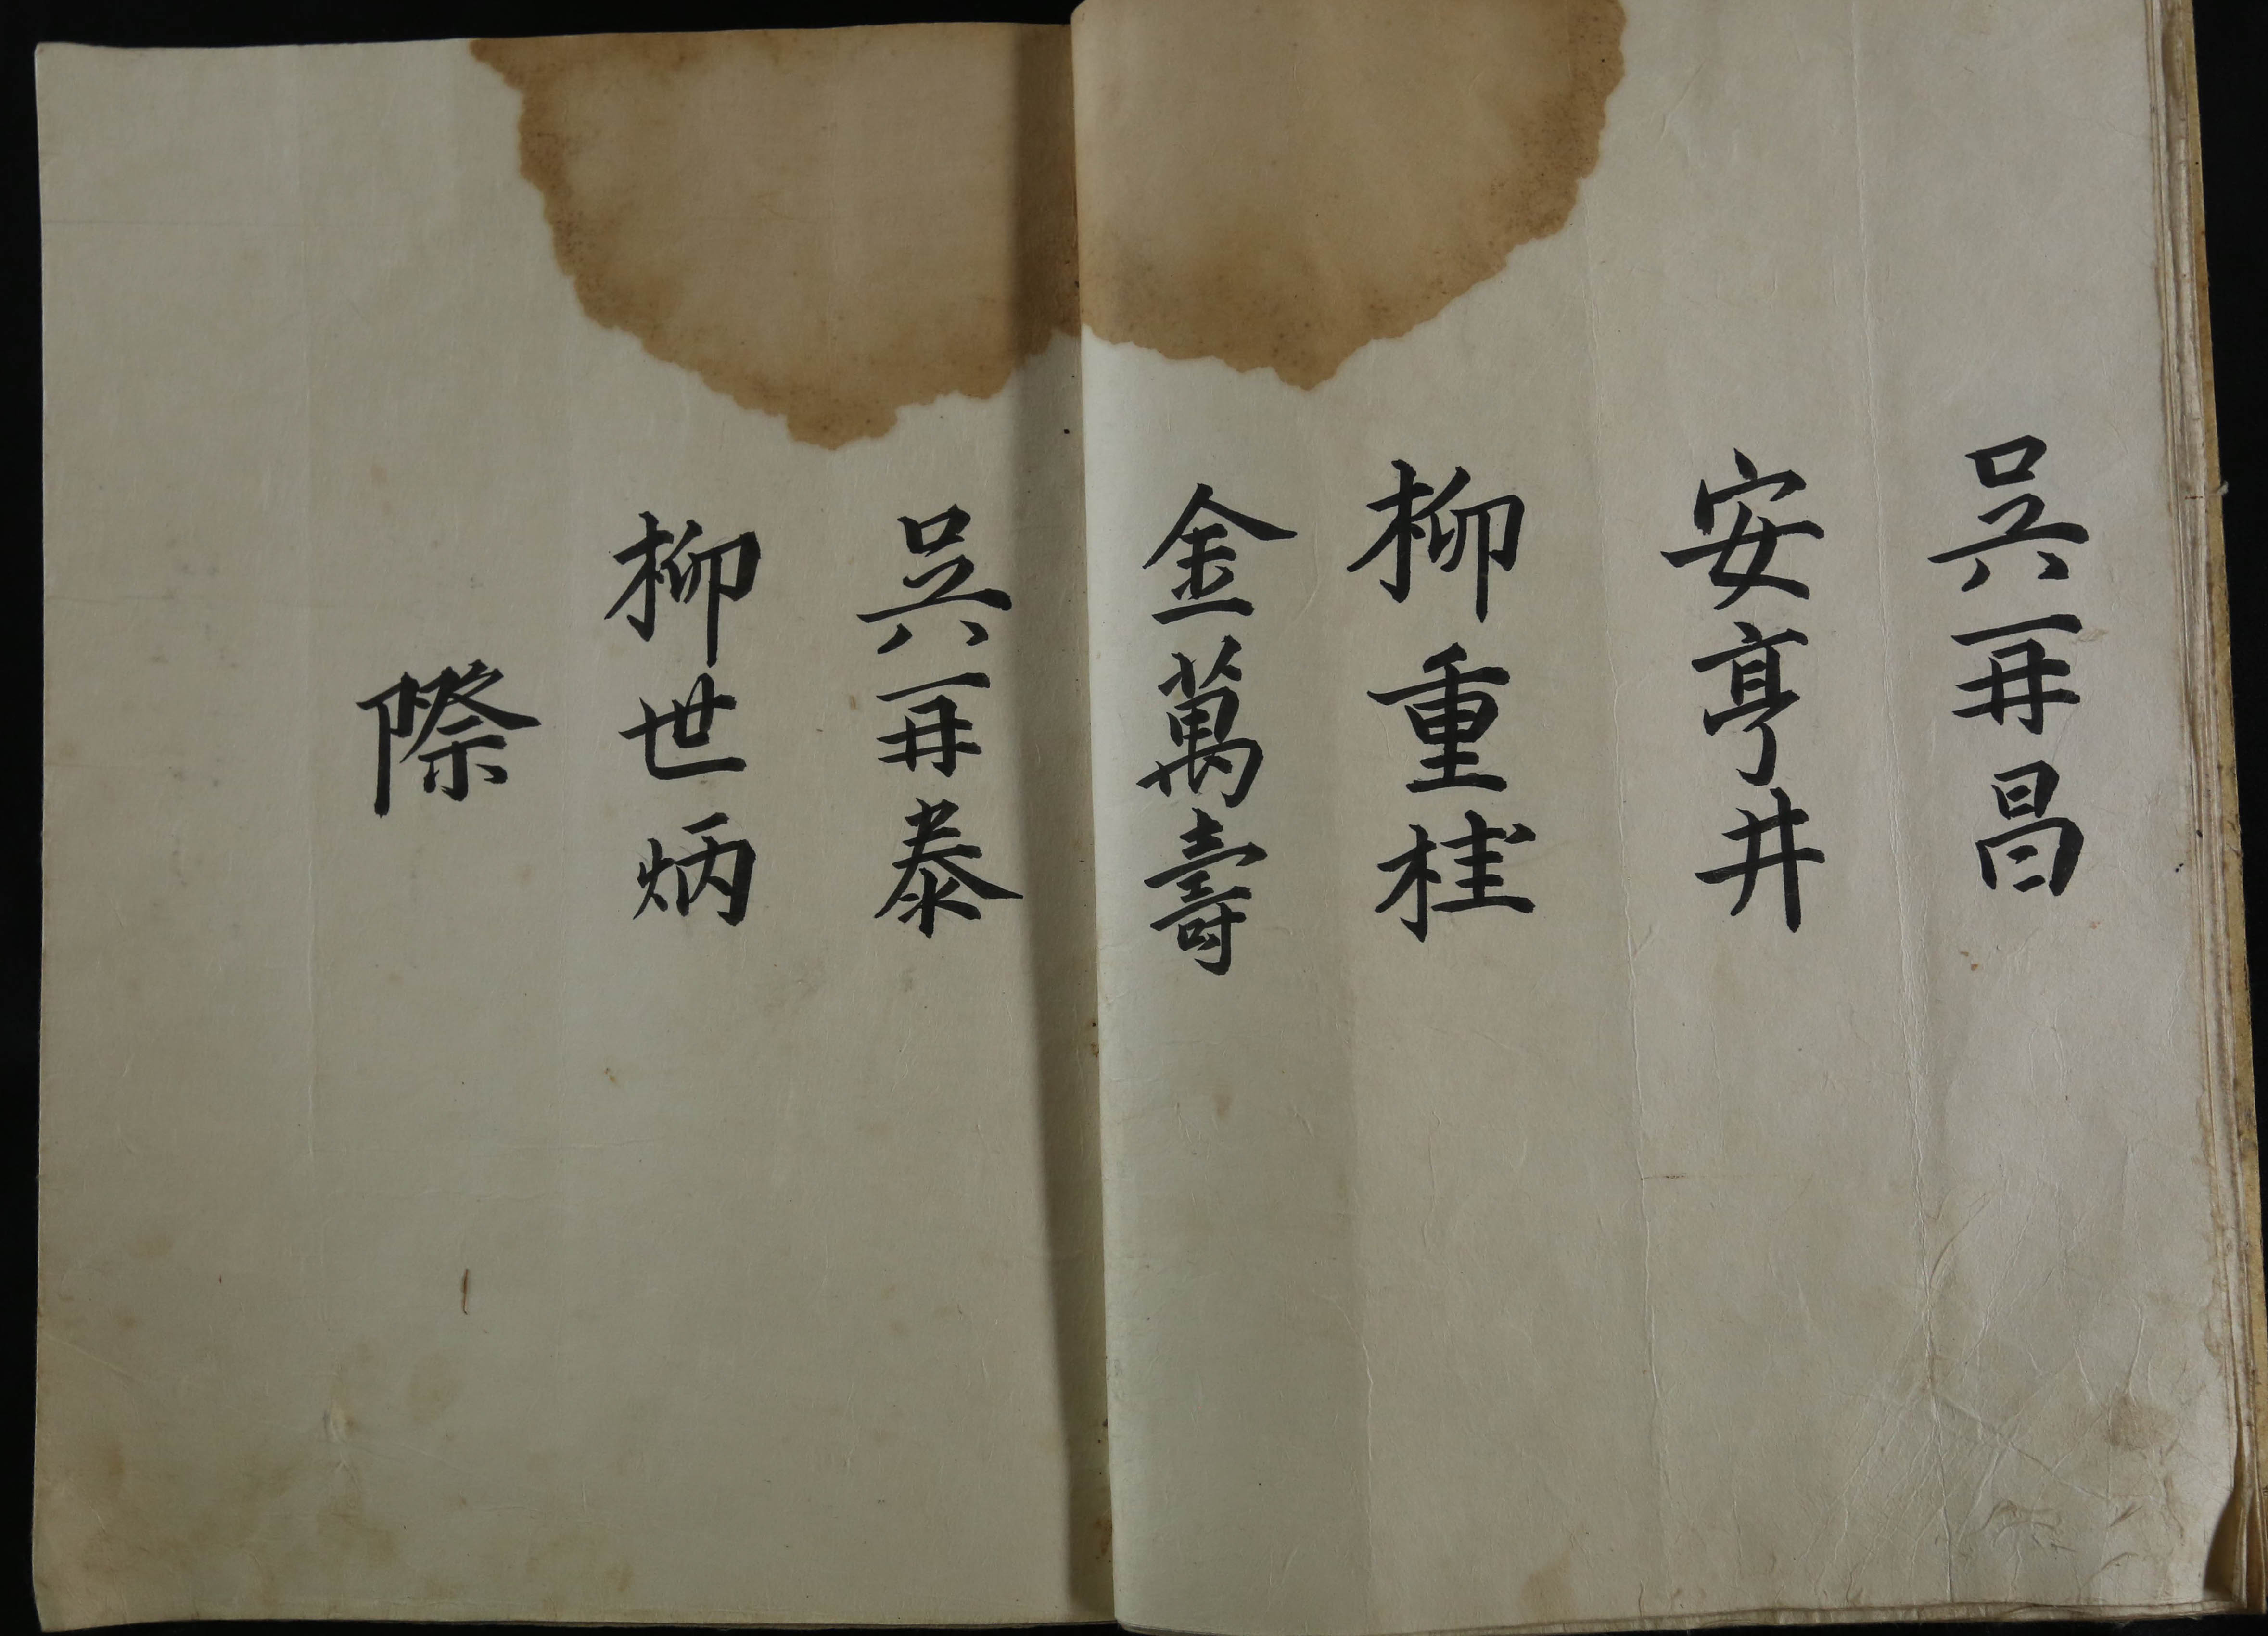 吳再昌
安亨井
柳重桂
金萬壽
吳再泰
柳世炳
際